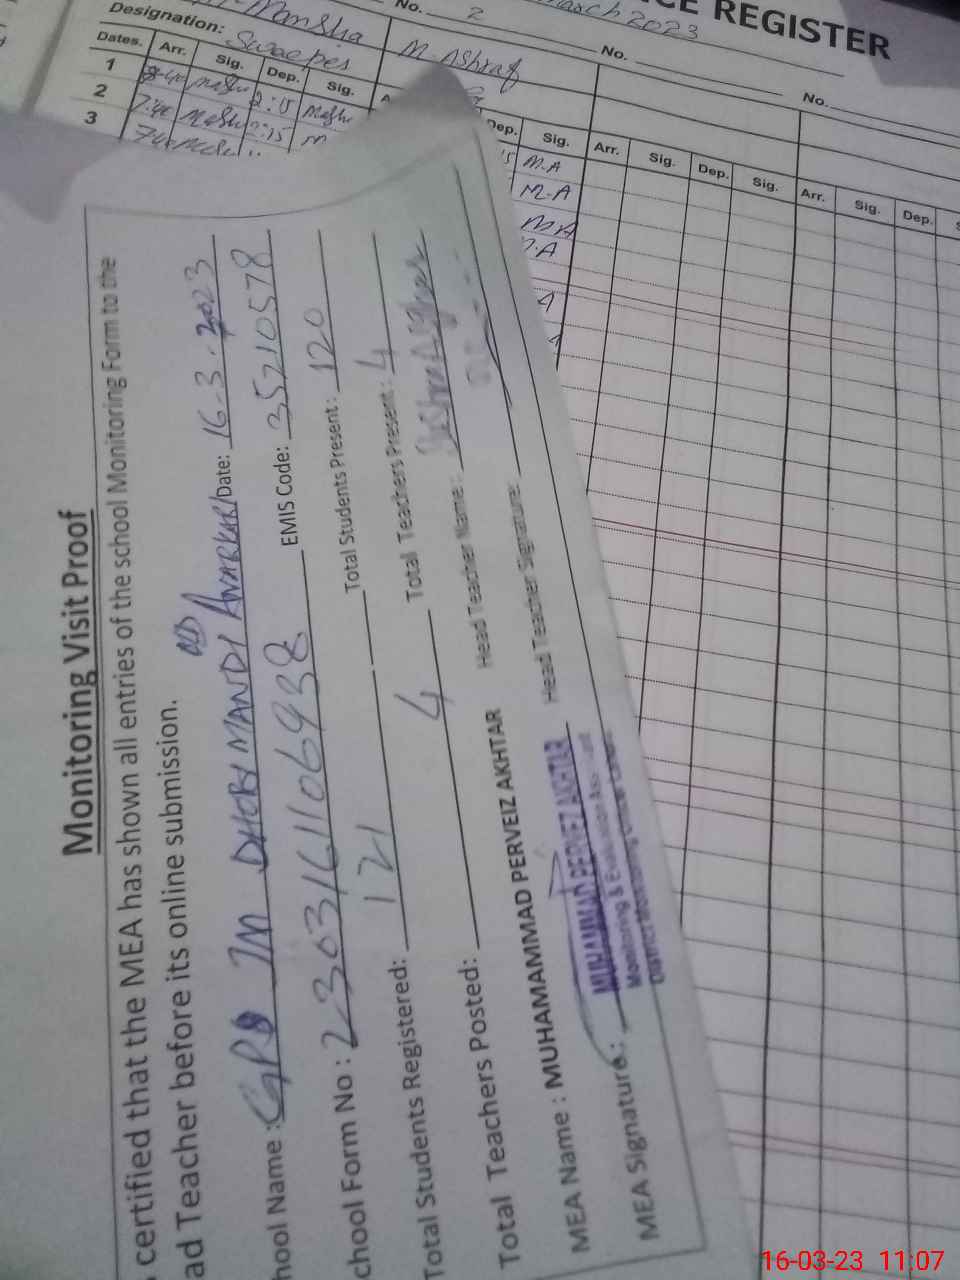 CE REGISTER
March 2023
Mansha
No. 2
No.
No.
Designation: Sweeper
M. Ashraf
Dates. Arr. Sig. Dep. Sig.
Dep. Sig. Arr. Sig. Dep. Sig. Arr. Sig. Dep.
1
2
3
M.A
M.A
M.A
Monitoring Visit Proof
certified that the MEA has shown all entries of the school Monitoring Form to the
ad Teacher before its online submission.
hool Name : GPS JM DHOBI MANDI OLD ANARKALI Date: 16-3-2023
chool Form No : EMIS Code: 35210578
Total Students Registered: 121 Total Students Present: 120
Total Teachers Posted: 4 Total Teachers Present: 4
MEA Name : MUHAMAMMAD PERVEIZ AKHTAR Head Teacher Name:
MEA Signature: Head Teacher Signature:
MUHAMMAD PERVEZ AKHTAR
Monitoring & Evaluation Assistant
16-03-23 11:07